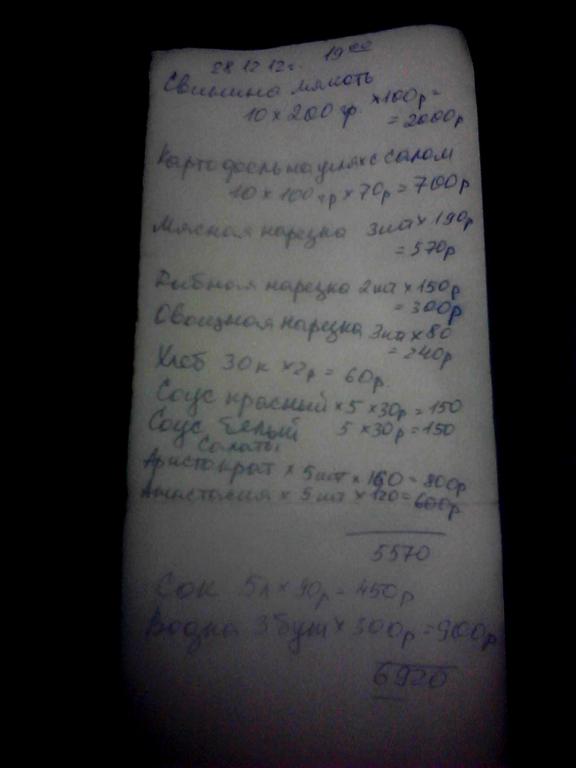 28 12 12г. 19 00
Свинина мякоть
10 х 200 гр. х100р =
= 2000р
Картофель на углях с салом
10 х 100 гр х 70р = 700р
Мясная нарезка 3на х 190р
= 570р
Рыбная нарезка 2на х 150р
= 300р
Овощная нарезка 3на х 80
= 240р
Хлеб 30к х 2р = 60р.
Соус красный х 5 х 30р = 150
Соус белый 5 х 30р = 150
Салаты
Аристократ х 5шт х 160 = 800р
Анастасия х 5шт х 120 = 600р
5570
Сок 5л х 90р = 450р
Водка 3бут х 300р = 900р
6920